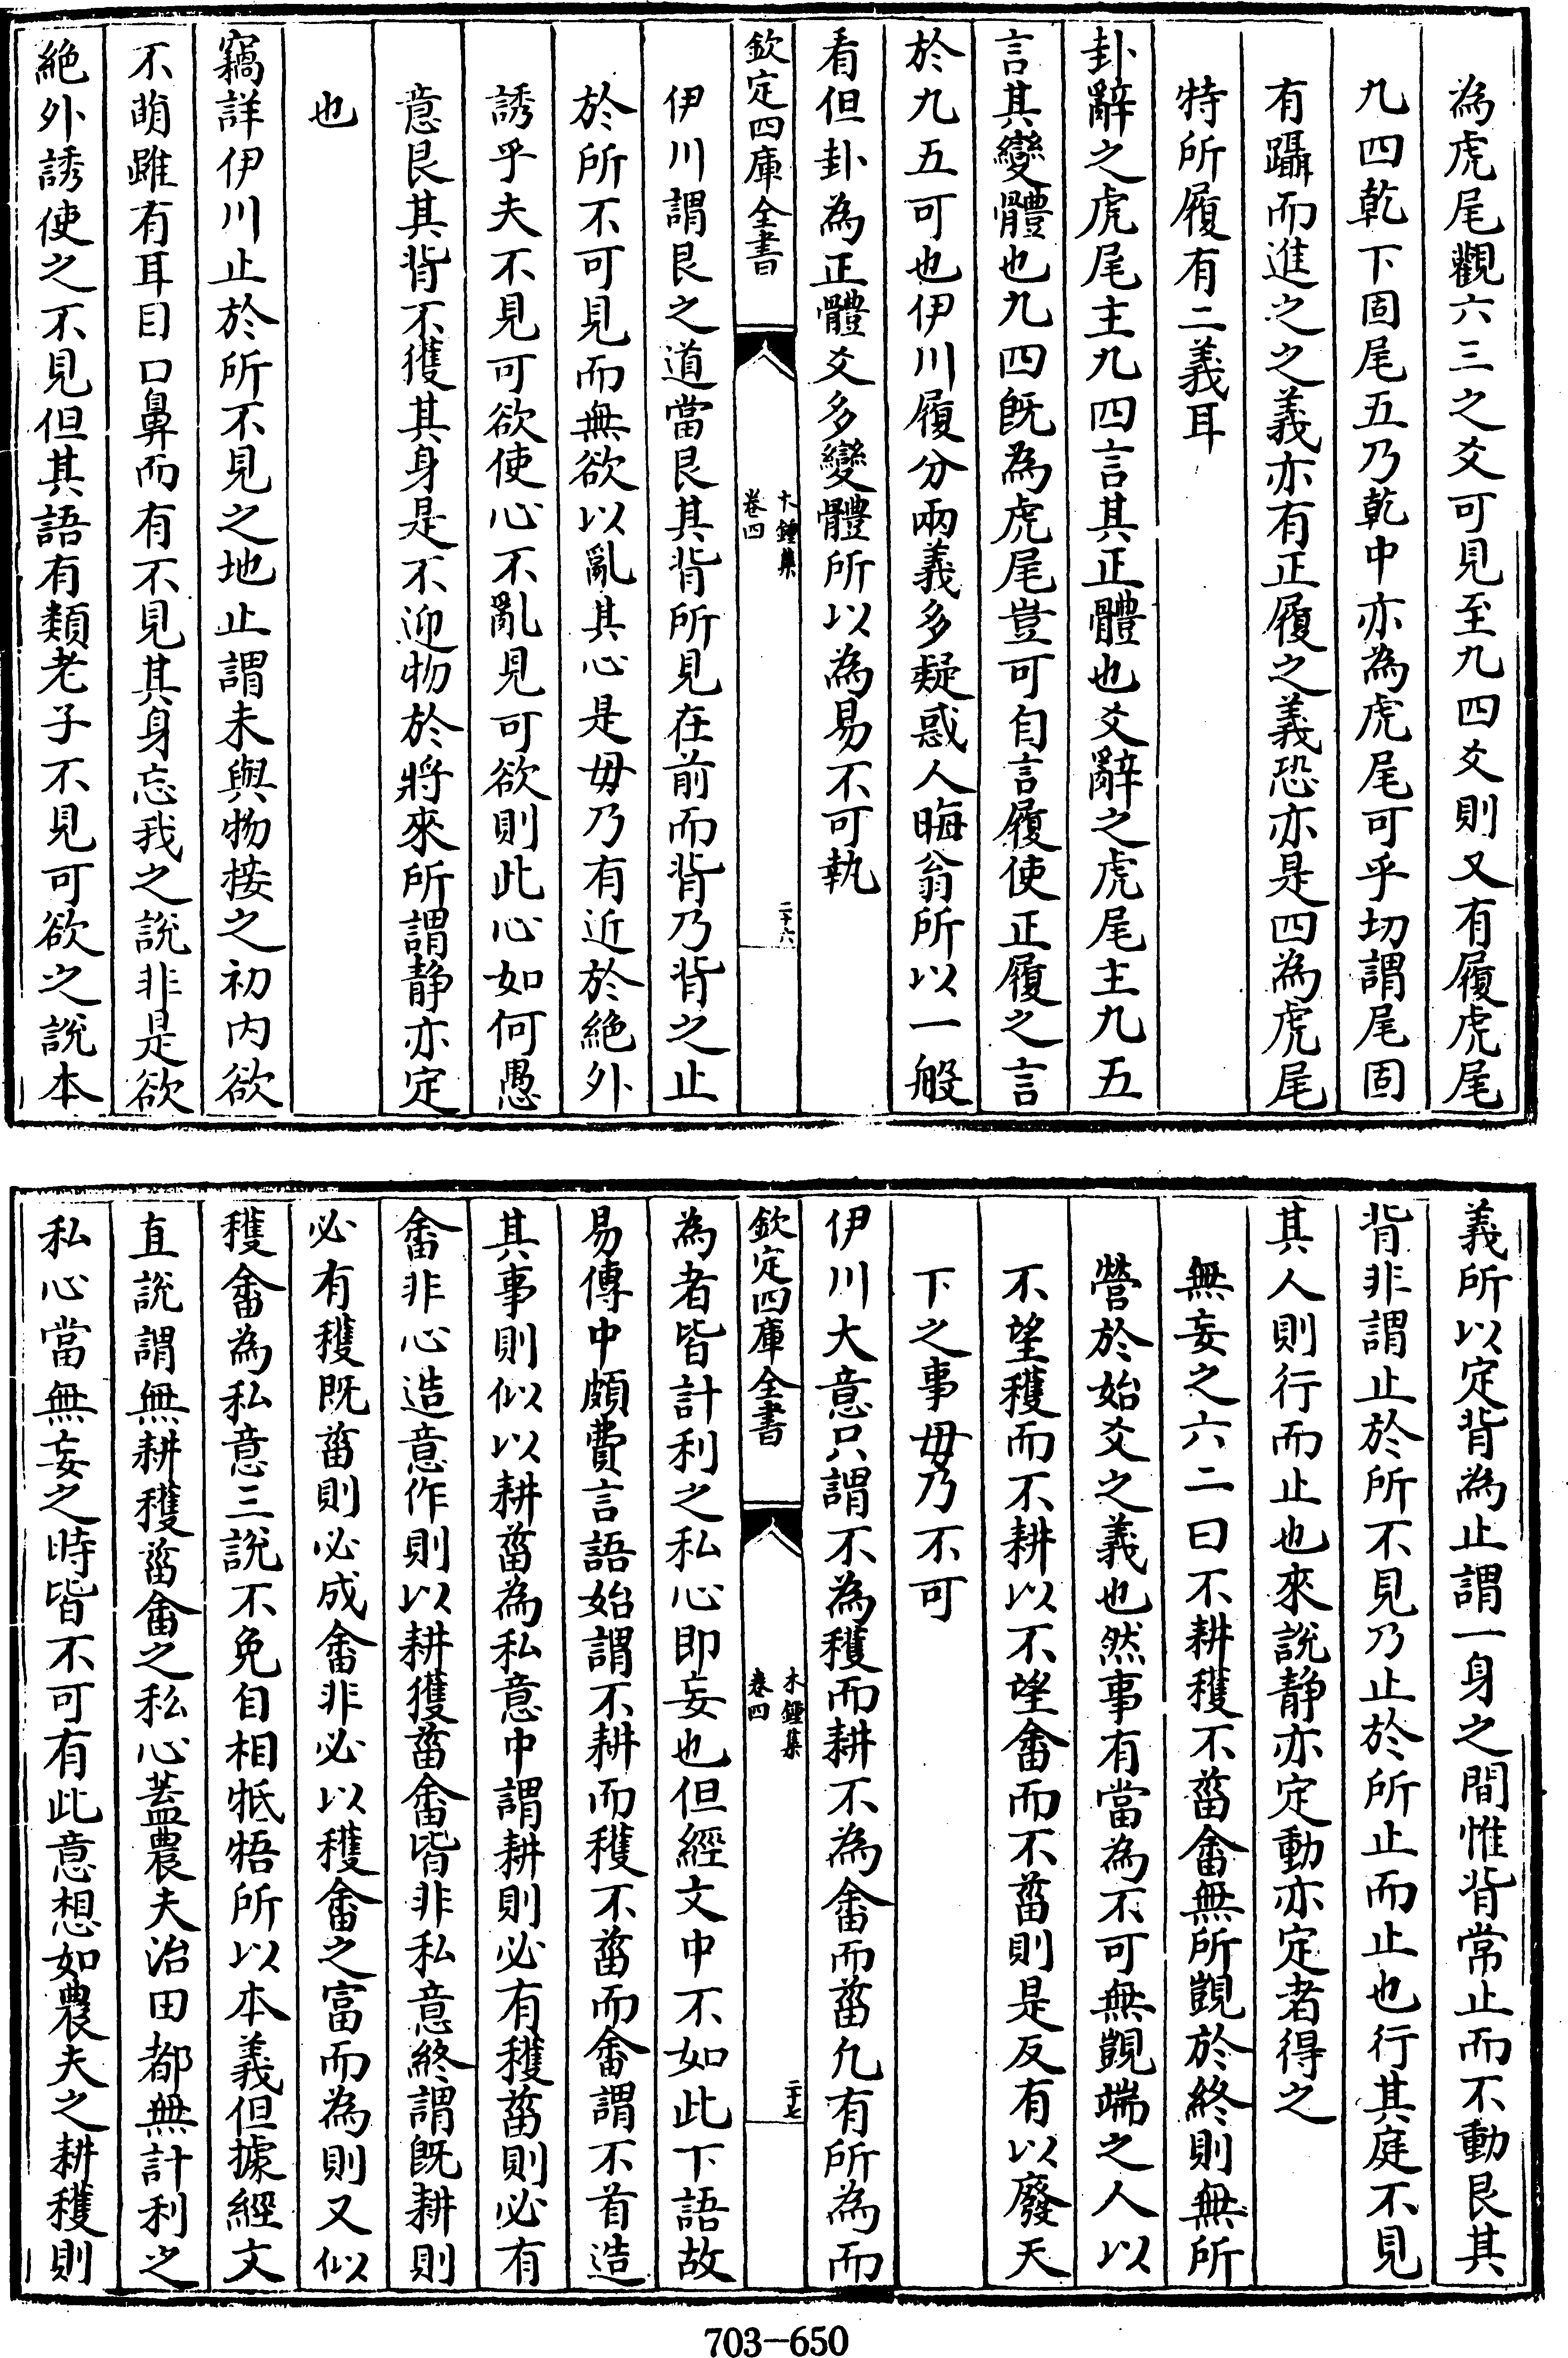 為虎尾觀六三之爻可見至九四爻則又有履虎尾
九四乾下固尾五乃乾中亦為虎尾可乎切謂尾固
有躡而進之之義亦有正履之義恐亦是四為虎尾
特所履有二義耳
卦辭之虎尾主九四言其正體也爻辭之虎尾主九五
言其變體也九四既為虎尾豈可自言履使正履之言
於九五可也伊川履分兩義多疑惑人晦翁所以一般
看但卦為正體爻多變體所以為易不可執
欽定四庫全書
木鍾集
卷四
二十六
伊川謂艮之道當艮其背所見在前而背乃背之止
於所不可見而無欲以亂其心是毋乃有近於絶外
誘乎夫不見可欲使心不亂見可欲則此心如何愚
意艮其背不獲其身是不迎物於將來所謂静亦定
也
竊詳伊川止於所不見之地止謂未與物接之初内欲
不萌雖有耳目口鼻而有不見其身忘我之說非是欲
絶外誘使之不見但其語有類老子不見可欲之說本
義所以定背為止謂一身之間惟背常止而不動艮其
背非謂止於所不見乃止於所止而止也行其庭不見
其人則行而止也來說静亦定動亦定者得之
無妄之六二曰不耕穫不菑畬無所覬於終則無所
營於始爻之義也然事有當為不可無覬端之人以
不望穫而不耕以不望畬而不菑則是反有以廢天
下之事毋乃不可
伊川大意只謂不為穫而耕不為畬而菑凡有所為而
欽定四庫全書
木鍾集
卷四
二十七
為者皆計利之私心即妄也但經文中不如此下語故
易傳中頗費言語始謂不耕而穫不菑而畬謂不首造
其事則似以耕菑為私意中謂耕則必有穫菑則必有
畬非心造意作則以耕獲菑畬皆非私意終謂既耕則
必有穫既菑則必成畬非必以穫畬之富而為則又似
穫畬為私意三說不免自相牴牾所以本義但據經文
直說謂無耕穫菑畬之私心蓋農夫治田都無計利之
私心當無妄之時皆不可有此意想如農夫之耕穫則
703-650